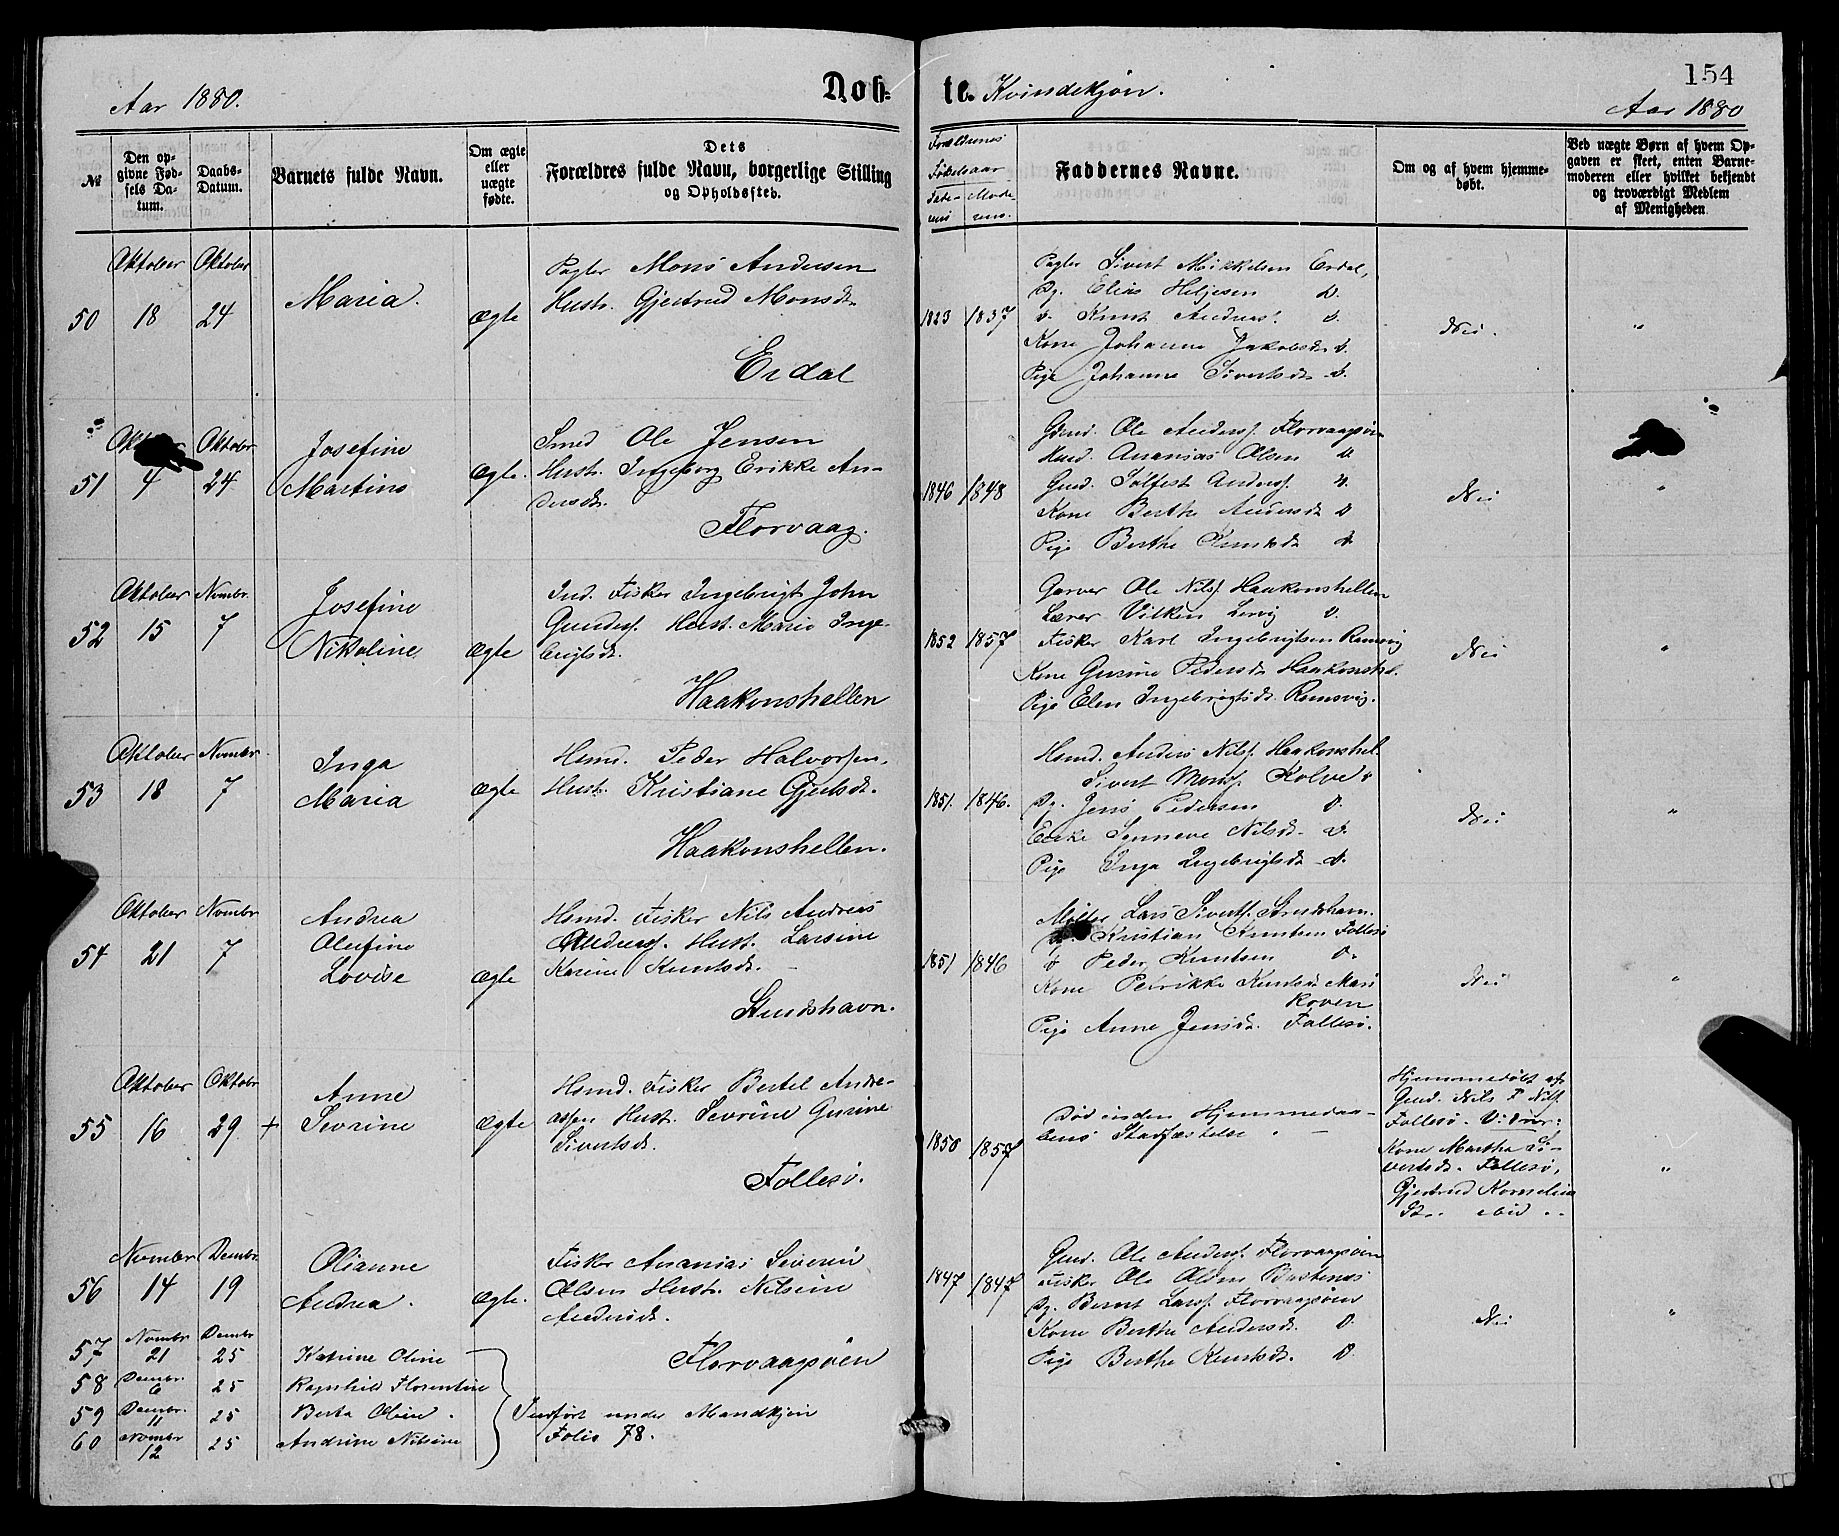 154
Aar 1880.
Døb-
te. Kvindekjøn.
Aar 1880
№
Den op-
givne Fød-
sels Da-
tum.
Daabs-
Datum.
Barnets fulde Navn.
Om ægte
eller
uægte
fødte.
Dets
Forældres fulde Navn, borgerlige Stilling
og Opholdssted.
Forældrenes
Fødselsaar
Fade-
rens
Mode-
rens.
Faddernes Navne.
Om og af hvem hjemme-
døbt.
Ved uægte Børn af hvem Op-
gaven er skeet, enten Barne-
moderen eller hvilket bekjendt
og troværdigt Medlem
af Menigheden
50
Oktober
18
Oktober
24
Maria.
Ægte
Pagter Mons Andersen
Hustr. Gjertrud Monsdt.
Erdal
1823
1837
Pagter Sivert Mikkelsen Erdal,
Pg. Elias Heljesen D.
D. Knut Anders. D.
Kone Johanne Jakobsdt. D.
Pige Johanne Sivertsdt. D.
Nei.
"
51
4
Oktober
24
Josefine
Martine
Ægte.
Smed Ole Jensen
Hustr. Ingeborg Erikke An-
dersdt.
Florvaag.
1846
1848
Gmd. Ole Anders. Florvaagøen
Husd. Ananias Olsen D
Gmd. Salfest Anders. D.
Kone Berthe Andersdt D
Pige Berthe Knutsdt D.
Nei
"
52
Oktober
15
Novmbr.
7
Josefine
Nikoline
Ægte
Ind. Fisker Ingebrigt John
Gunders. Hust. Marie Inge-
brigtsdt.
Haakonshellen
1852
1857
Garver Ole Nils. Haakonshellen
Lærer Vilken Lervig D.
Fisker Karl Ingebrigtsen Ramsvig
Kone Gurine Pedersdt Haakonshel.
Pige Elen Ingebrigtsdt. Ramsvig.
Nei
"
53
Oktober
18
Novmbr.
7
Inga
Maria
Ægte
Hsmd. Peder Halvorsen,
Hust. Kristiane Gjertsdt.
Haakonshellen.
1851.
1846.
Hsmd. Anders Nils. Haakonshel.
Sivert Mons. Kolve D
Pg. Jens Pedersen D.
Enke Synneve Nilsdt. D.
Pige Inga Ingebrigtsdt. D.
Nei
"
54
Oktober
21
Novmbr
7
Andrea
Olufine
Lovise
Ægte
Hsmd. Fisker Nils Andreas
Anders. Hust. Larsine
Karine Knutsdt.
Strudshavn.
1851
1846
Møller Lars Siverts. Strudshavn.
Kristian Knutsen Follesø
D Peder Knutsen D.
Kone Petrikke Knutsdt Mari
Koven
Pige Anne Jensdt. Follesø.
Nei
"
55
Oktober
16
Oktobr
29
+
Anne
Sevrine
Ægte
Hsmd. Fisker Bertel Andre-
assen Hust. Sevrine Gurine
Sivertsdt.
Follesø.
1850
1857
Død inden Hjemmedaa-
bens Stadfæstelse
Hjemmedøbt af
Gmd. Nils P Nils.
Follesø. Vidner:
Kone Martha Si-
vertsdt. Follesø,
Gjertrud Kornelia
ibid
"
56
Novmbr
14
Dembr.
19
Olianne
Andrea.
Ægte.
Fisker Ananias Severin
Olsen Hustr. Nilsine
Andersdt.
Florvaagøen
1847
1847
Gmd. Ole Anders. Florvaagøen
Fisker Ole Olsen Bustenes
Pg. Bernt Lars. Florvaagøen
Kone Berthe Andersdt. D.
Pige Berthe Knutsdt. D.
Nei
"
57
Novmbr
21
Dembr
25
Katrine Oline
58
Dembr.
6
25
Ragnhild Florentine
59
Dembr.
11
25
Berta Oline.
60
Novmbr
12
25
Andrine Nilsine
Indført under Mandkjøn
Folio 78.